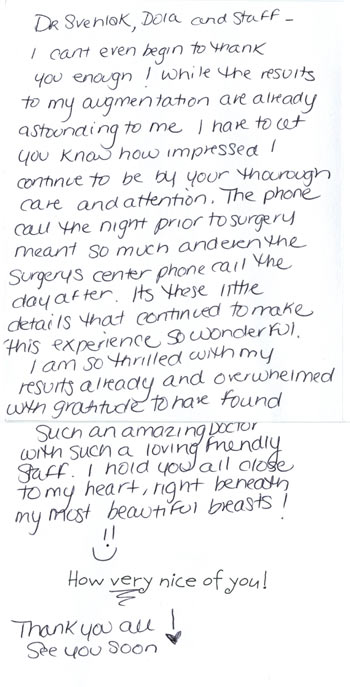 Dr Svenlok, Dola and Staff -
I cant even begin to thank
you enough! While the results
to my augmentation are already
astounding to me I have to let
you know how impressed I
continue to be by your thourough
care and attention. The phone
call the night prior to surgery
meant so much and even the
surgerys center phone call the
day after. Its these little
details that continued to make
this experience so wonderful.
I am so thrilled with my
results already and overwhelmed
with gratitude to have found
such an amazing Doctor
with such a loving friendly
staff. I hold you all close
to my heart, right beneath
my most beautiful breasts!
!!
How very nice of you!
Thank you all!
See you soon